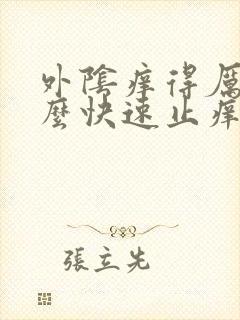 外陰痒得厲
麼快速止痒
張立先